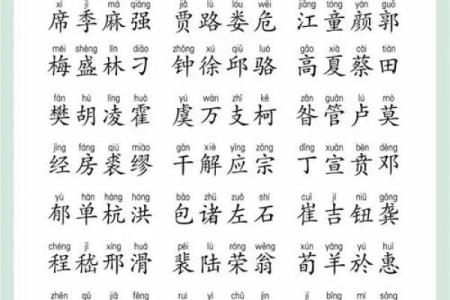 xí jì má qiáng jiǎ lù lóu wēi jiāng tóng yán guō
席季麻强 贾路娄危 江童颜郭
méi shèng lín diāo zhōng xú qiū luò gāo xià cài tián
梅盛林刁 钟徐邱骆 高夏蔡田
fán hú líng huò yú wàn zhī kē zǎn guǎn lú mò
樊胡凌霍 虞万支柯 昝管卢莫
jīng fáng qiú miào gān xiè yīng zōng dīng xuān bēn dèng
经房裘缪 干解应宗 丁宣贲邓
yù shàn háng hóng bāo zhū zuǒ shí cuī jí niǔ gōng
郁单杭洪 包诸左石 崔吉钮龚
chéng jī xíng huá péi lù róng wēng xún yáng yú huì
程嵇邢滑 裴陆荣翁 荀羊於惠